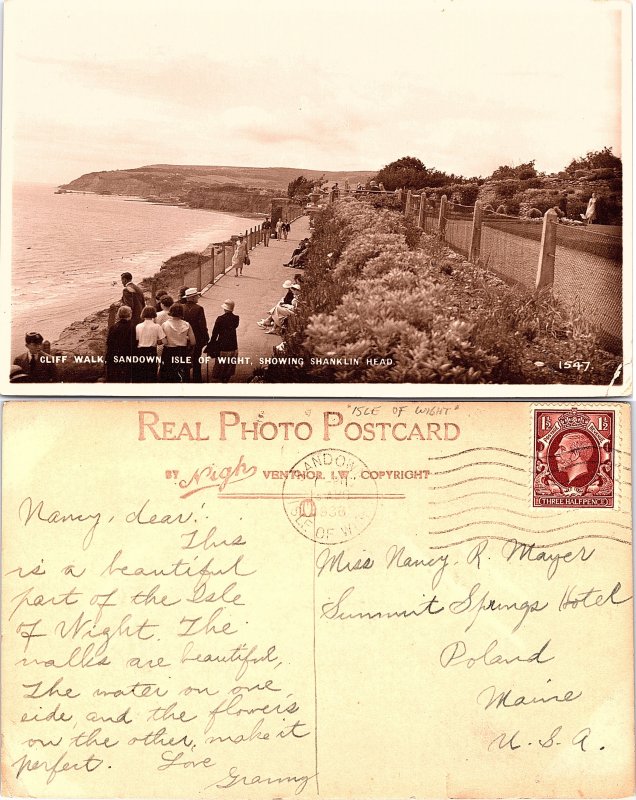 CLIFF WALK, SANDOWN, ISLE OF WIGHT, SHOWING SHANKLIN HEAD.
1547
"ISLE OF WIGHT"
REAL PHOTO POSTCARD
BY Nigh VENTNOR, I.W., COPYRIGHT
SANDOWN
1936
ISLE OF WIGHT
1½ 1½
THREE HALFPENCE
Nancy, dear:
This
is a beautiful
part of the Isle
of Wight. The
walks are beautiful,
The water on one
side, and the flowers
on the other, make it
perfect. Love
Granny
Miss Nancy. R. Mayer
Summit Springs Hotel
Poland
Maine
U. S. A.